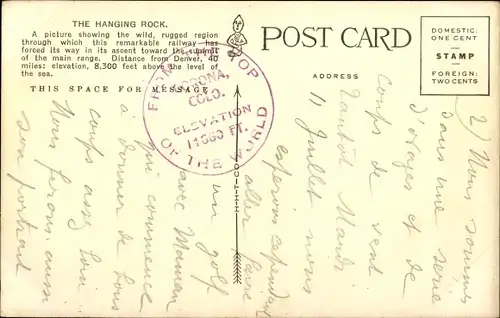 THE HANGING ROCK.
A picture showing the wild, rugged region
through which this remarkable railway has
forced its way in its ascent toward the summit
of the main range. Distance from Denver, 40
miles: elevation, 8,300 feet above the level of
the sea.
THIS SPACE FOR MESSAGE
POST CARD
ADDRESS
DOMESTIC:
ONE CENT
STAMP
FOREIGN:
TWO CENTS
FROM TOP
CORONA,
COLO.
ELEVATION
11660 FT.
OF THE WORLD
2) Nous sommes
dans une série
d'orages et de
coups de vent
tantôt Mardi
11 Juillet nous
espérons cependant
aller faire
un golf
avec Maman
qui commence
à donner de bons
coups assez loin
Nous ferons aussi
son portrait